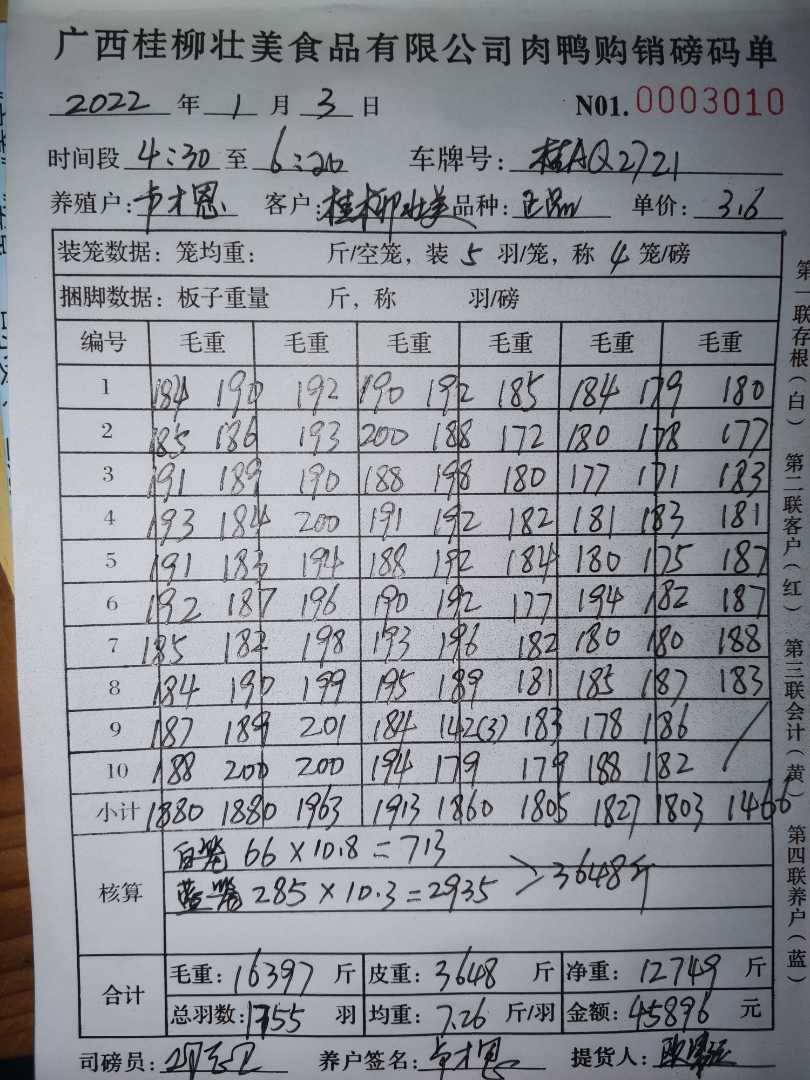 广西桂柳壮美食品有限公司肉鸭购销磅码单
2022 年 1 月 3 日 N01. 0003010
时间段 4:30 至 6:20 车牌号: 桂AQ2721
养殖户: 卢才恩 客户: 桂柳壮美 品种: 正品 单价: 3.6
装笼数据: 笼均重: 斤/空笼, 装 5 羽/笼, 称 4 笼/磅
捆脚数据: 板子重量 斤, 称 羽/磅
编号 毛重 毛重 毛重 毛重 毛重 毛重
1 184 190 192 190 192 185 184 179 180
2 185 186 193 200 188 172 180 178 177
3 191 189 190 188 198 180 177 171 183
4 193 184 200 191 192 182 181 183 181
5 191 183 194 188 192 184 180 175 187
6 192 187 196 190 192 177 194 182 187
7 185 182 198 193 196 182 180 180 188
8 184 190 199 195 189 181 185 187 183
9 187 189 201 184 142(3) 183 178 186 /
10 188 200 200 194 179 179 188 182
小计 1880 1880 1963 1913 1860 1805 1827 1803 1466
核算
白笼 66 × 10.8 = 713
蓝笼 285 × 10.3 = 2935 > 3648斤
合计
毛重: 16397 斤 皮重: 3648 斤 净重: 12749 斤
总羽数: 1755 羽 均重: 7.26 斤/羽 金额: 45896 元
司磅员: 养户签名: 卢才恩 提货人:
第一联存根(白) 第二联客户(红) 第三联会计(黄) 第四联养户(蓝)